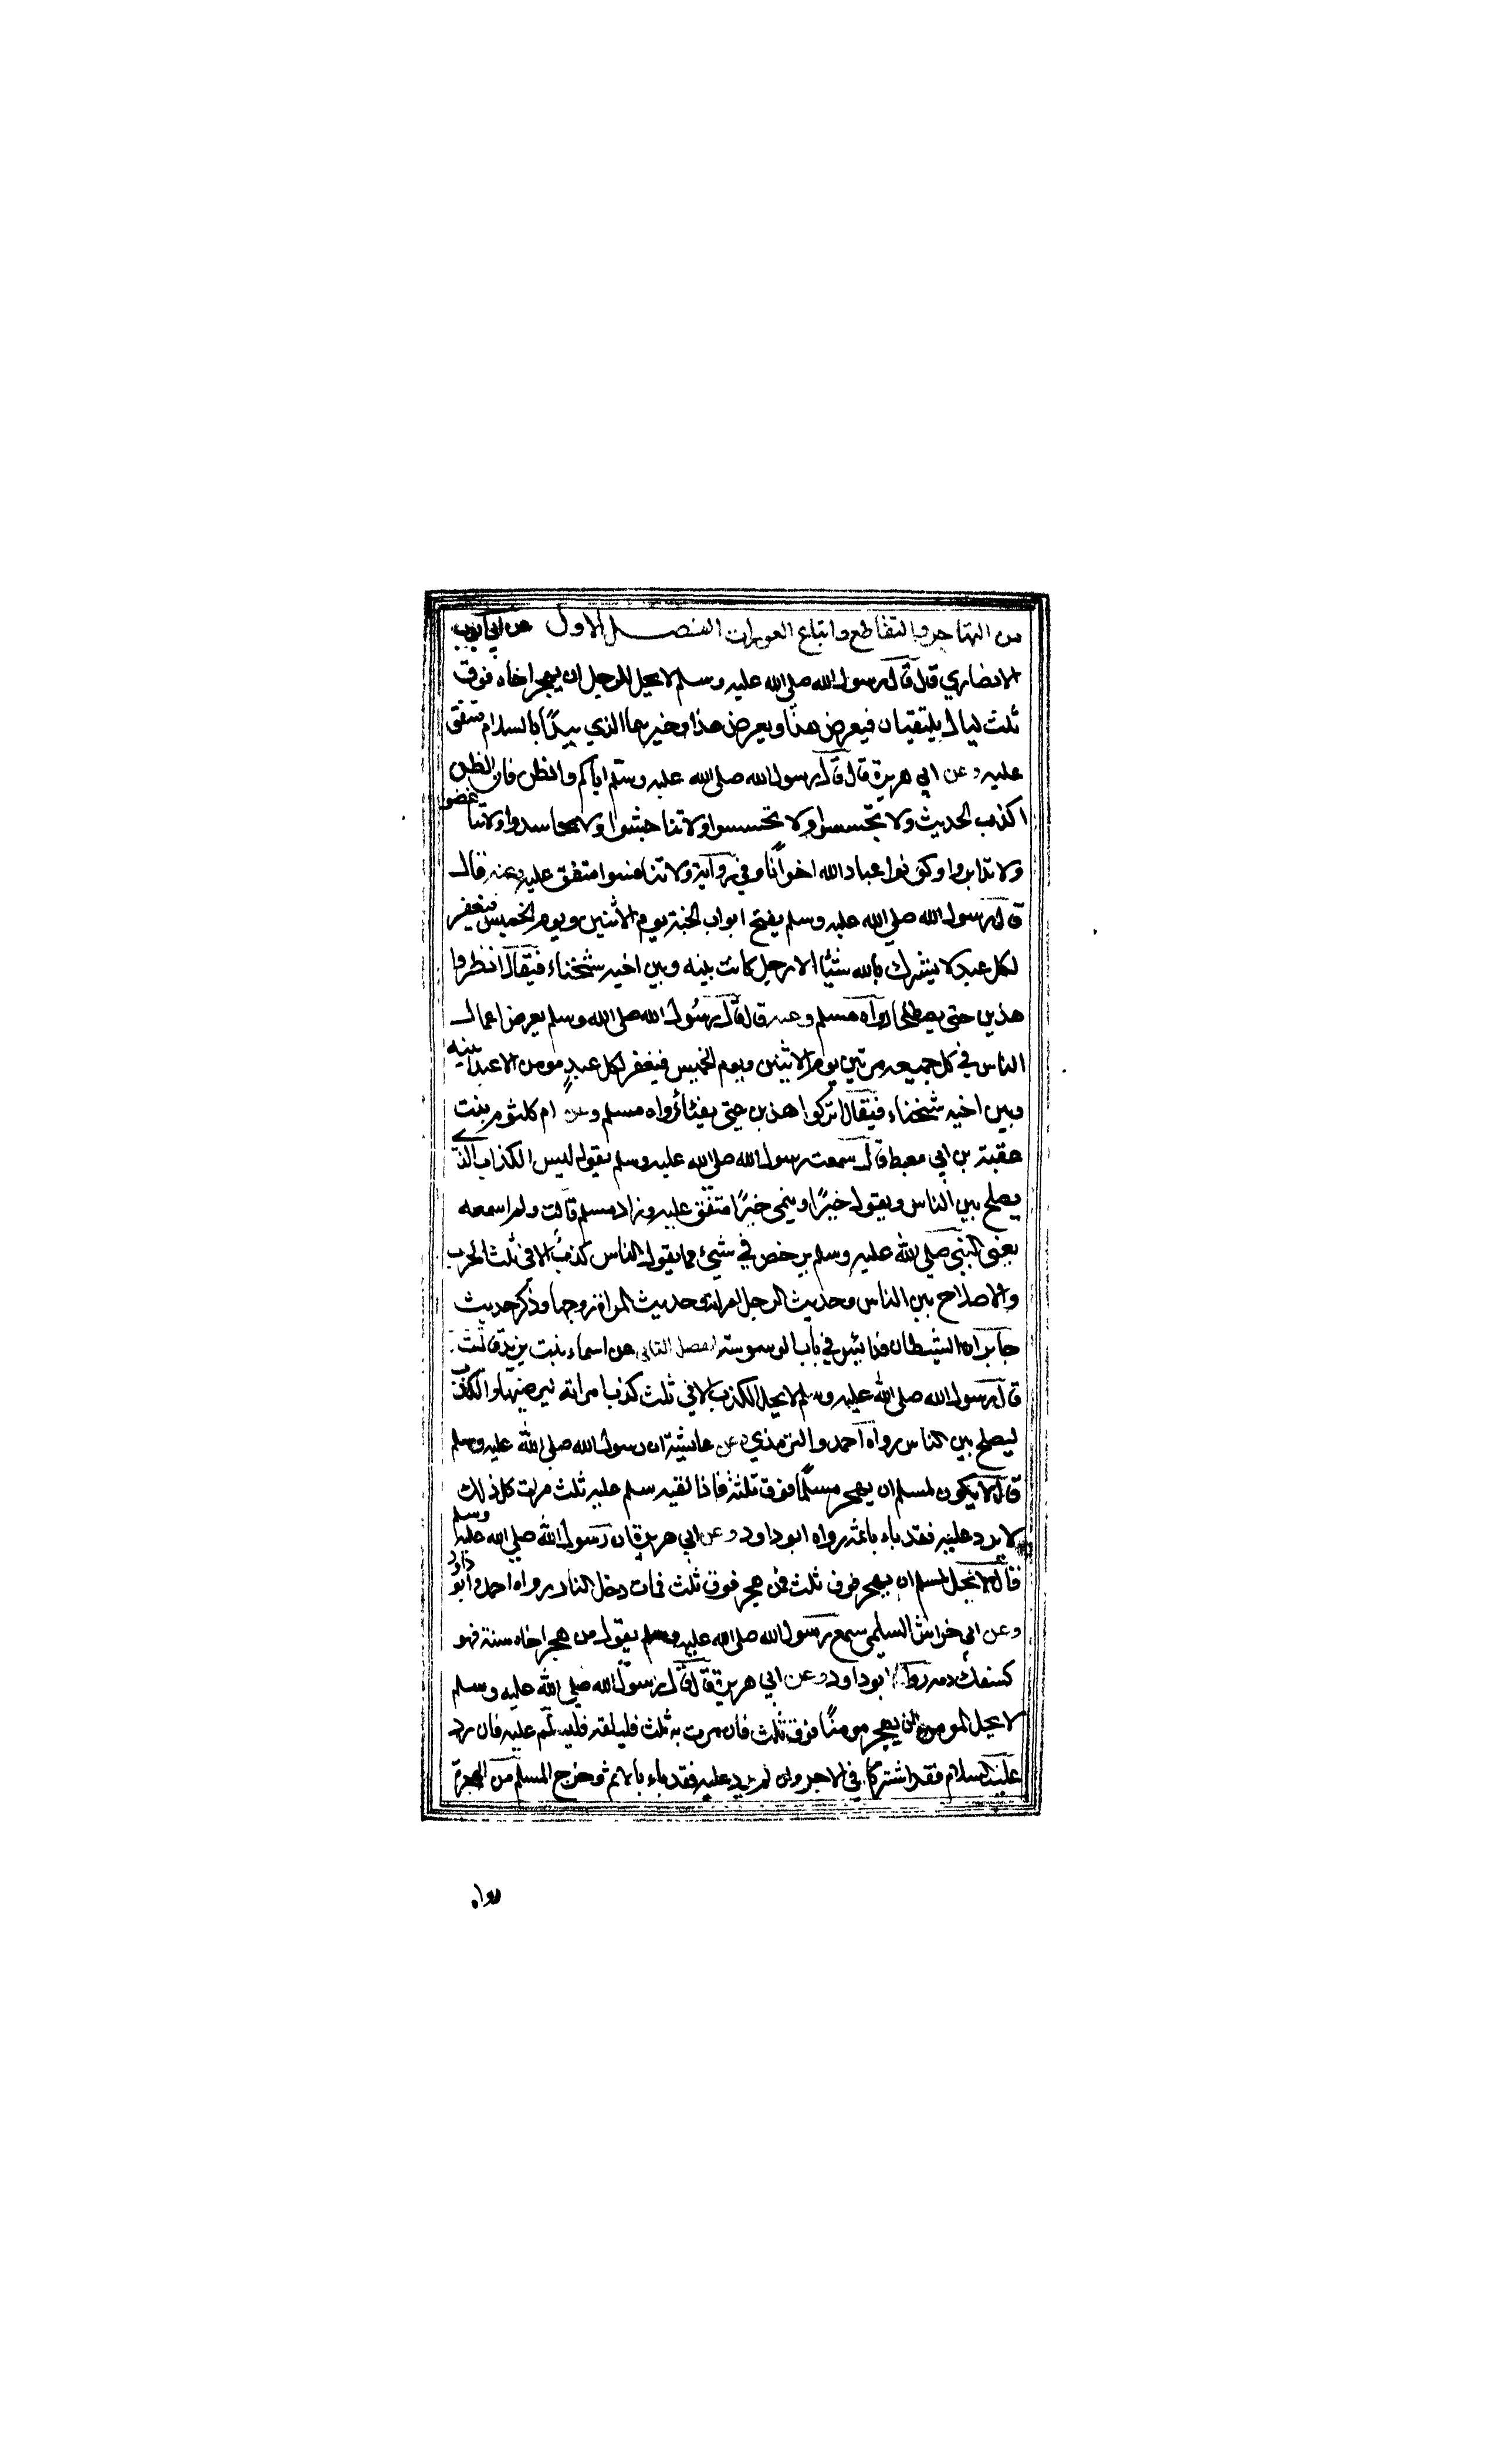 من التهاجر والتقاطع واتباع العورات الفصل الاول عن ابي ايوب
الانصاري قال قال رسول الله صلى الله عليه وسلم لا يحل للرجل ان يهجر اخاه فوق
ثلث ليال يلتقيان فيعرض هذا ويعرض هذا وخيرهما الذي يبدأ بالسلام متفق
عليه وعن ابي هريرة قال قال رسول الله صلى الله عليه وسلم اياكم والظن فان الظن
اكذب الحديث ولا تجسسوا ولا تحسسوا ولا تناجشوا ولا تحاسدوا ولا تباغضوا
ولا تدابروا وكونوا عباد الله اخوانا وفي رواية ولا تنافسوا متفق عليه وعنه قال
قال رسول الله صلى الله عليه وسلم يفتح ابواب الجنة يوم الاثنين ويوم الخميس فيغفر
لكل عبد لا يشرك بالله شيئا الا رجل كانت بينه وبين اخيه شحناء فيقال انظروا
هذين حتى يصطلحا رواه مسلم وعنه قال قال رسول الله صلى الله وسلم يعرض اعمال
الناس في كل جمعه مرتين يوم الاثنين ويوم الخميس فيغفر لكل عبدٍ مومن الا عبدا بينه
وبين اخيه شحناء فيقال اتركوا هذين حتى يفيئا رواه مسلم وعن ام كلثوم بنت
عقبة بن ابي معيط قال سمعت رسول الله صلى الله عليه وسلم يقول ليس الكذاب الذي
يصلح بين الناس ويقول خيرًا وينمي خيرًا متفق عليه وزاد مسلم قالت ولم اسمعه
يعني النبي صلى الله عليه وسلم يرخص في شيء مما يقول الناس كذب الا في ثلث الحرب
والاصلاح بين الناس وحديث الرجل امراته وحديث المراة زوجها وذكر حديث
جابر ان الشيطان قد ائيس في باب الوسوسة الفصل الثاني عن اسماء بنت يزيد قالت
قال رسول الله صلى الله عليه وسلم لا يحل الكذب الا في ثلث كذب امراته ليرضيها والكذب
ليصلح بين الناس رواه احمد والترمذي وعن عايشة ان رسول الله صلى الله عليه وسلم
قال لا يكون لمسلم ان يهجر مسلمًا فوق ثلثة فاذا لقيه سلم عليه ثلث مرات كل ذلك
لا يرد عليه فقد باء باثمه رواه ابو داود وعن ابي هريرة ان رسول الله صلى الله عليه وسلم
قال لا يحل لمسلم ان يهجر فوق ثلث فمن هجر فوق ثلث فمات دخل النار رواه احمد وابو داود
وعن ابي خراش السلمي سمع رسول الله صلى الله عليه وسلم يقول من هجر اخاه سنة فهو
كسفك دمه رواه ابو داود وعن ابي هريرة قال قال رسول الله صلى الله عليه وسلم
لا يحل لمومن ان يهجر مومنًا فوق ثلث فان مرت به ثلث فليلقه فليسلم عليه فان رد
عليه السلام فقد اشتركا في الاجر وان لم يرد عليه فقد باء بالاثم وخرج المسلم من الهجرة
رواه